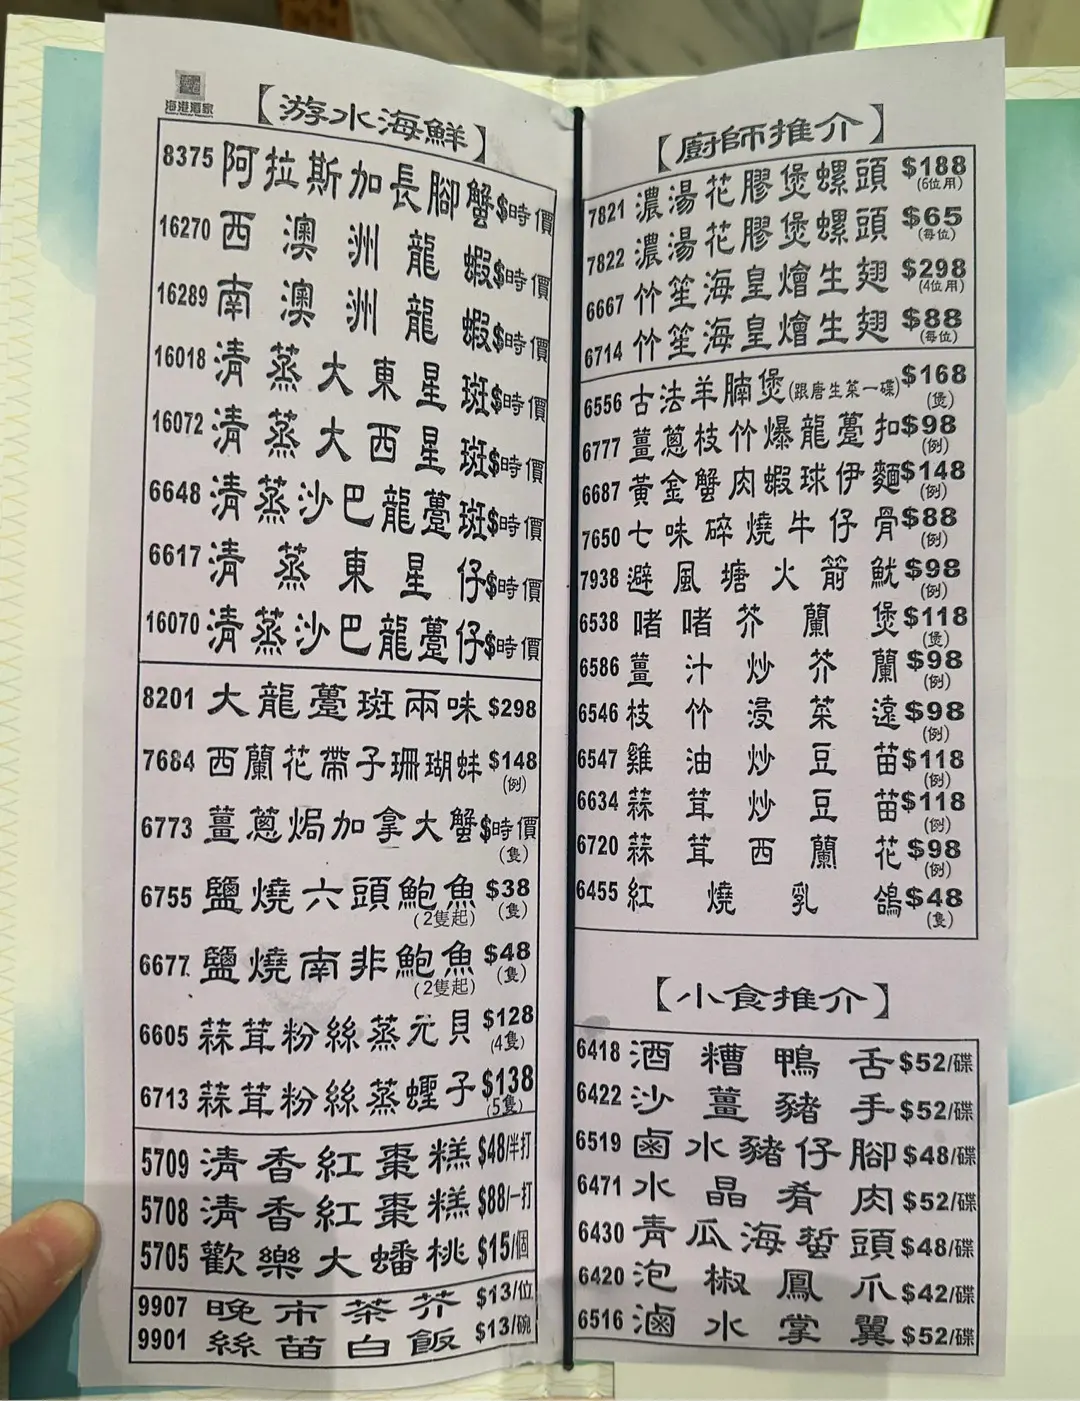 海港酒家
【游水海鮮】
8375 阿拉斯加長腳蟹 $時價
16270 西澳洲龍蝦 $時價
16289 南澳洲龍蝦 $時價
16018 清蒸大東星斑 $時價
16072 清蒸大西星斑 $時價
6648 清蒸沙巴龍躉斑 $時價
6617 清蒸東星仔 $時價
16070 清蒸沙巴龍躉仔 $時價
8201 大龍躉斑兩味 $298
7684 西蘭花帶子珊瑚蚌 $148 (例)
6773 薑蔥焗加拿大蟹 $時價 (隻)
6755 鹽燒六頭鮑魚 (2隻起) $38 (隻)
6677 鹽燒南非鮑魚 (2隻起) $48 (隻)
6605 蒜茸粉絲蒸元貝 $128 (4隻)
6713 蒜茸粉絲蒸蟶子 $138 (5隻)
5709 清香紅棗糕 $48/半打
5708 清香紅棗糕 $88/一打
5705 歡樂大蟠桃 $15/個
9907 晚市茶芥 $13/位
9901 絲苗白飯 $13/碗
【廚師推介】
7821 濃湯花膠煲螺頭 $188 (6位用)
7822 濃湯花膠煲螺頭 $65 (每位)
6667 竹笙海皇燴生翅 $298 (4位用)
6714 竹笙海皇燴生翅 $88 (每位)
6556 古法羊腩煲 (跟唐生菜一碟) $168 (煲)
6777 薑蔥枝竹爆龍躉扣 $98 (例)
6687 黃金蟹肉蝦球伊麵 $148 (例)
7650 七味碎燒牛仔骨 $88 (例)
7938 避風塘火箭魷 $98 (例)
6538 啫啫芥蘭煲 $118 (煲)
6586 薑汁炒芥蘭 $98 (例)
6546 枝竹浸菜遠 $98 (例)
6547 雞油炒豆苗 $118 (例)
6634 蒜茸炒豆苗 $118 (例)
6720 蒜茸西蘭花 $98 (例)
6455 紅燒乳鴿 $48 (隻)
【小食推介】
6418 酒糟鴨舌 $52/碟
6422 沙薑豬手 $52/碟
6519 鹵水豬仔腳 $48/碟
6471 水晶肴肉 $52/碟
6430 青瓜海蜇頭 $48/碟
6420 泡椒鳳爪 $42/碟
6516 滷水掌翼 $52/碟